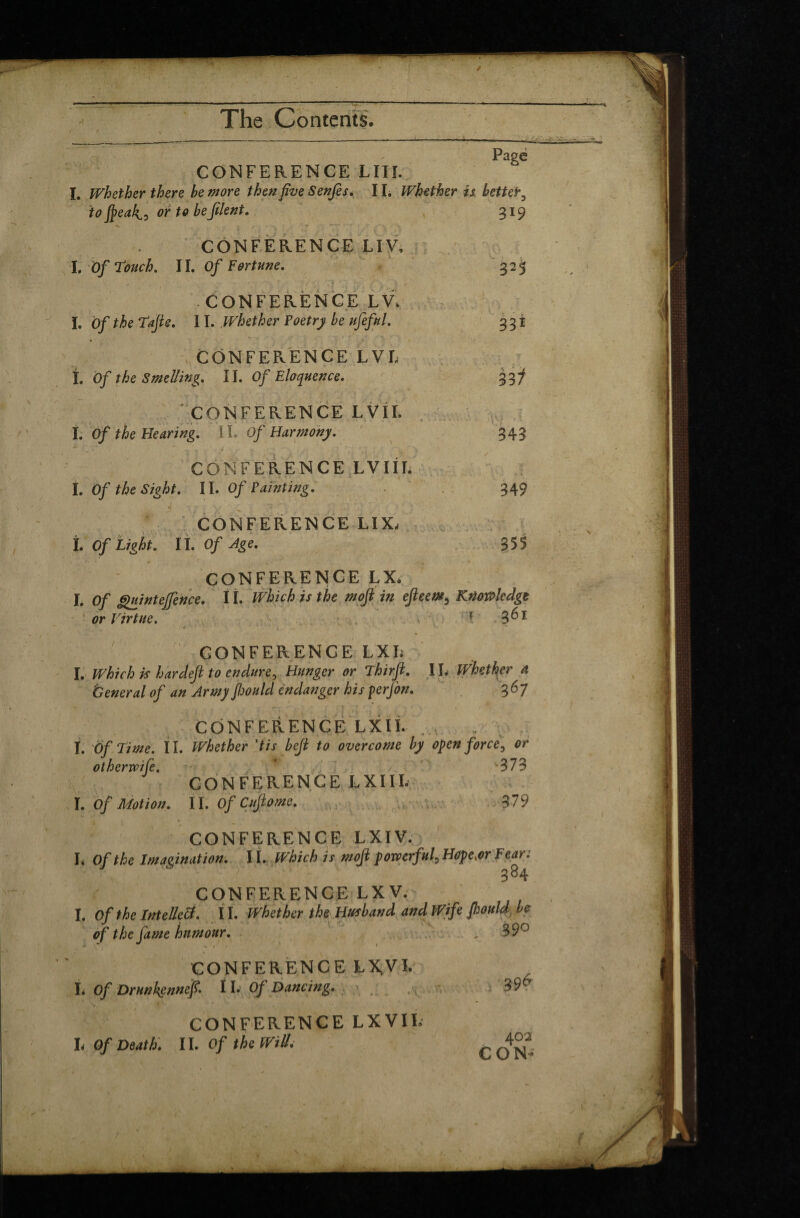 The Contents.
Page
CONFERENCE LIII.
I. Whether there be more then five Senſes. II. Whether is better,
to ſpeak, or to be ſilent. 319
CONFERENCE LIV.
I. Of Touch. II. Of Fortune. 325
CONFERENCE LV.
I. Of the Taſte. II. Whether Poetry be uſeful. 331
CONFERENCE LVI.
I. Of the Smelling. II. Of Eloquence. 337
CONFERENCE LVII.
I. Of the Hearing. II. Of Harmony. 343
CONFERENCE LVIII.
I. Of the Sight. II. Of Painting. 349
CONFERENCE LIX.
I. Of Light. II. Of Age. 355
CONFERENCE LX.
I. Of Quinteſſence. II. Which is the moſt in eſteem, Knowledge
or Virtue. 361
CONFERENCE LXI.
I. Which is hardeſt to endure, Hunger or Thirſt. II. Whether a
General of an Army ſhould endanger his perſon. 367
CONFERENCE LXII.
I. Of Time. II. Whether 'tis beſt to overcome by open force, or
otherwiſe. 373
CONFERENCE LXIII.
I. Of Motion. II. Of Cuſtome. 379
CONFERENCE LXIV.
I. Of the Imagination. II. Which is moſt powerful, Hope, or Fear.
384
CONFERENCE LXV.
I. Of the Intellect. II. Whether the Husband and Wife ſhould be
of the ſame humour. 390
CONFERENCE LXVI.
I. Of Drunkenneſs. II. Of Dancing. 396
CONFERENCE LXVII.
I. Of Death. II. Of the Will. 402
CON-